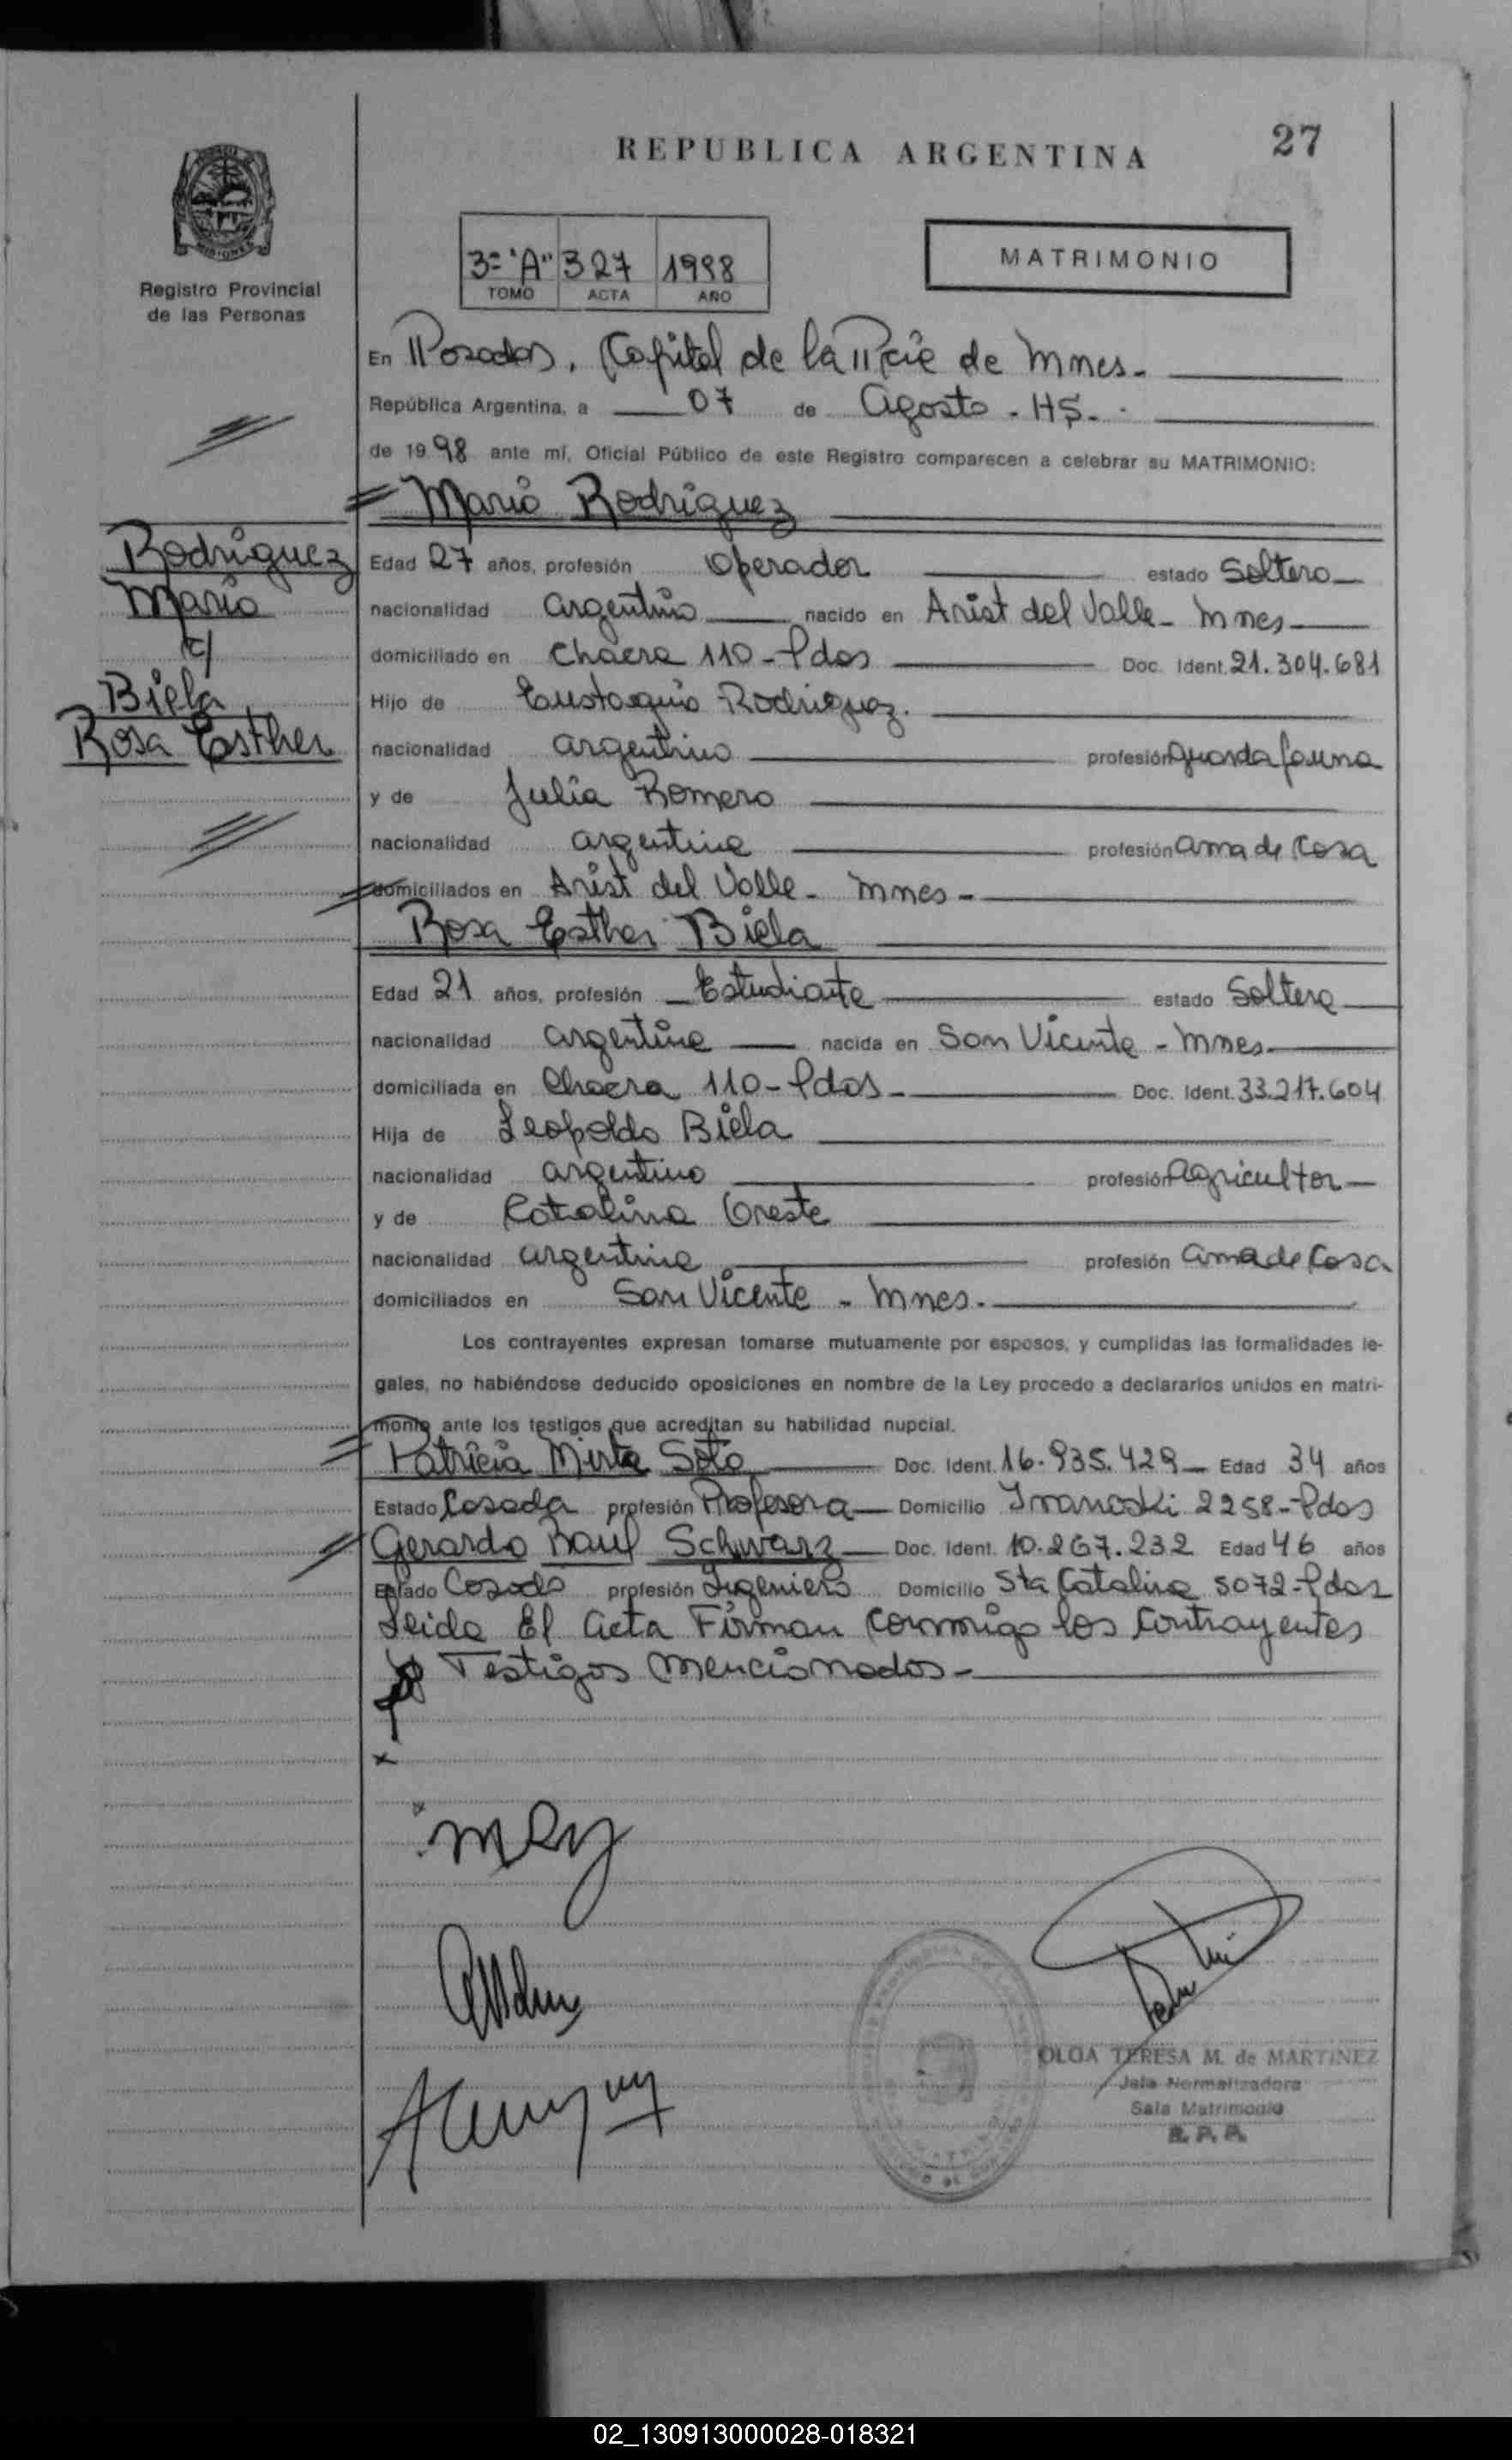 REPUBLICA ARGENTINA
27
3= "A" 327 1998
TOMO ACTA AÑO
MATRIMONIO
MISIONES
Registro Provincial
de las Personas
En Posadas, Capital de la Pcie de Mnes.
República Argentina, a 07 de Agosto - HS.
de 1998 ante mí, Oficial Público de este Registro comparecen a celebrar su MATRIMONIO:
Mario Rodriguez
Rodriguez
Mario
c/
Biela
Rosa Esther
Edad 27 años, profesión Operador estado Soltero
nacionalidad argentino nacido en Arist del Valle - Mnes
domiciliado en Chacra 110 - Pdas Doc. Ident. 21.304.681
Hijo de Eustaquio Rodriguez.
nacionalidad argentino profesión guardafauna
y de Julia Romero
nacionalidad argentina profesión ama de Casa
domiciliados en Arist del Valle - Mnes -
Rosa Esther Biela
Edad 21 años, profesión Estudiante estado Soltera
nacionalidad argentina nacida en San Vicente - Mnes.
domiciliada en Chacra 110 - Pdas - Doc. Ident. 33.217.604
Hija de Leopoldo Biela
nacionalidad argentino profesión agricultor
y de Catalina Oreste
nacionalidad argentina profesión ama de Casa
domiciliados en San Vicente - Mnes.
Los contrayentes expresan tomarse mutuamente por esposos, y cumplidas las formalidades le-
gales, no habiéndose deducido oposiciones en nombre de la Ley procedo a declararlos unidos en matri-
monio ante los testigos que acreditan su habilidad nupcial.
Patricia Mirta Soto Doc. Ident. 16.935.429 Edad 34 años
Estado Casada profesión Profesora Domicilio Iranoski 2258 - Pdas
Gerardo Raul Schwarz Doc. Ident. 10.267.232 Edad 46 años
Estado Casado profesión Ingeniero Domicilio Sta Catalina 5072 - Pdas
Leida El Acta Firman conmigo los Contrayentes
y Testigos Mencionados -
OLGA TERESA M. de MARTINEZ
Jefa Normalizadora
Sala Matrimonio
R. P. P.
02_130913000028-018321